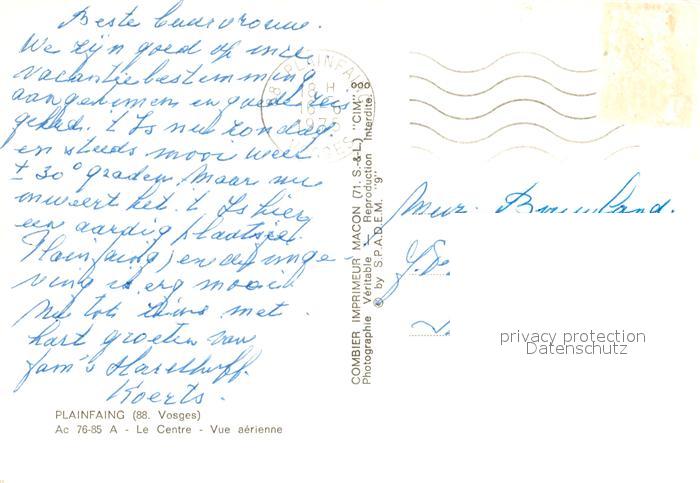 Beste buurvrouw.
We zijn goed op onze
vacantiebestemming
aangekomen en goede reis
gehad. 't Is nu zondag
en steeds mooi weer
± 30° graden, Maar nu
onweert het. 't Is hier
een aardig plaatsje
Plainfaing) en de omge-
ving is erg mooi.
Nu tot ziens met
hart. groeten van
fam's
Koerts.
PLAINFAING (88. Vosges)
Ac 76-85 A - Le Centre - Vue aérienne
88 PLAINFAING
18 H
VOSGES
COMBIER IMPRIMEUR MACON (71. S.-&-L.) "CIM"
Photographie Véritable - Reproduction Interdite
© by S.P.A.D.E.M. "9"
Mevr.
privacy protection
Datenschutz